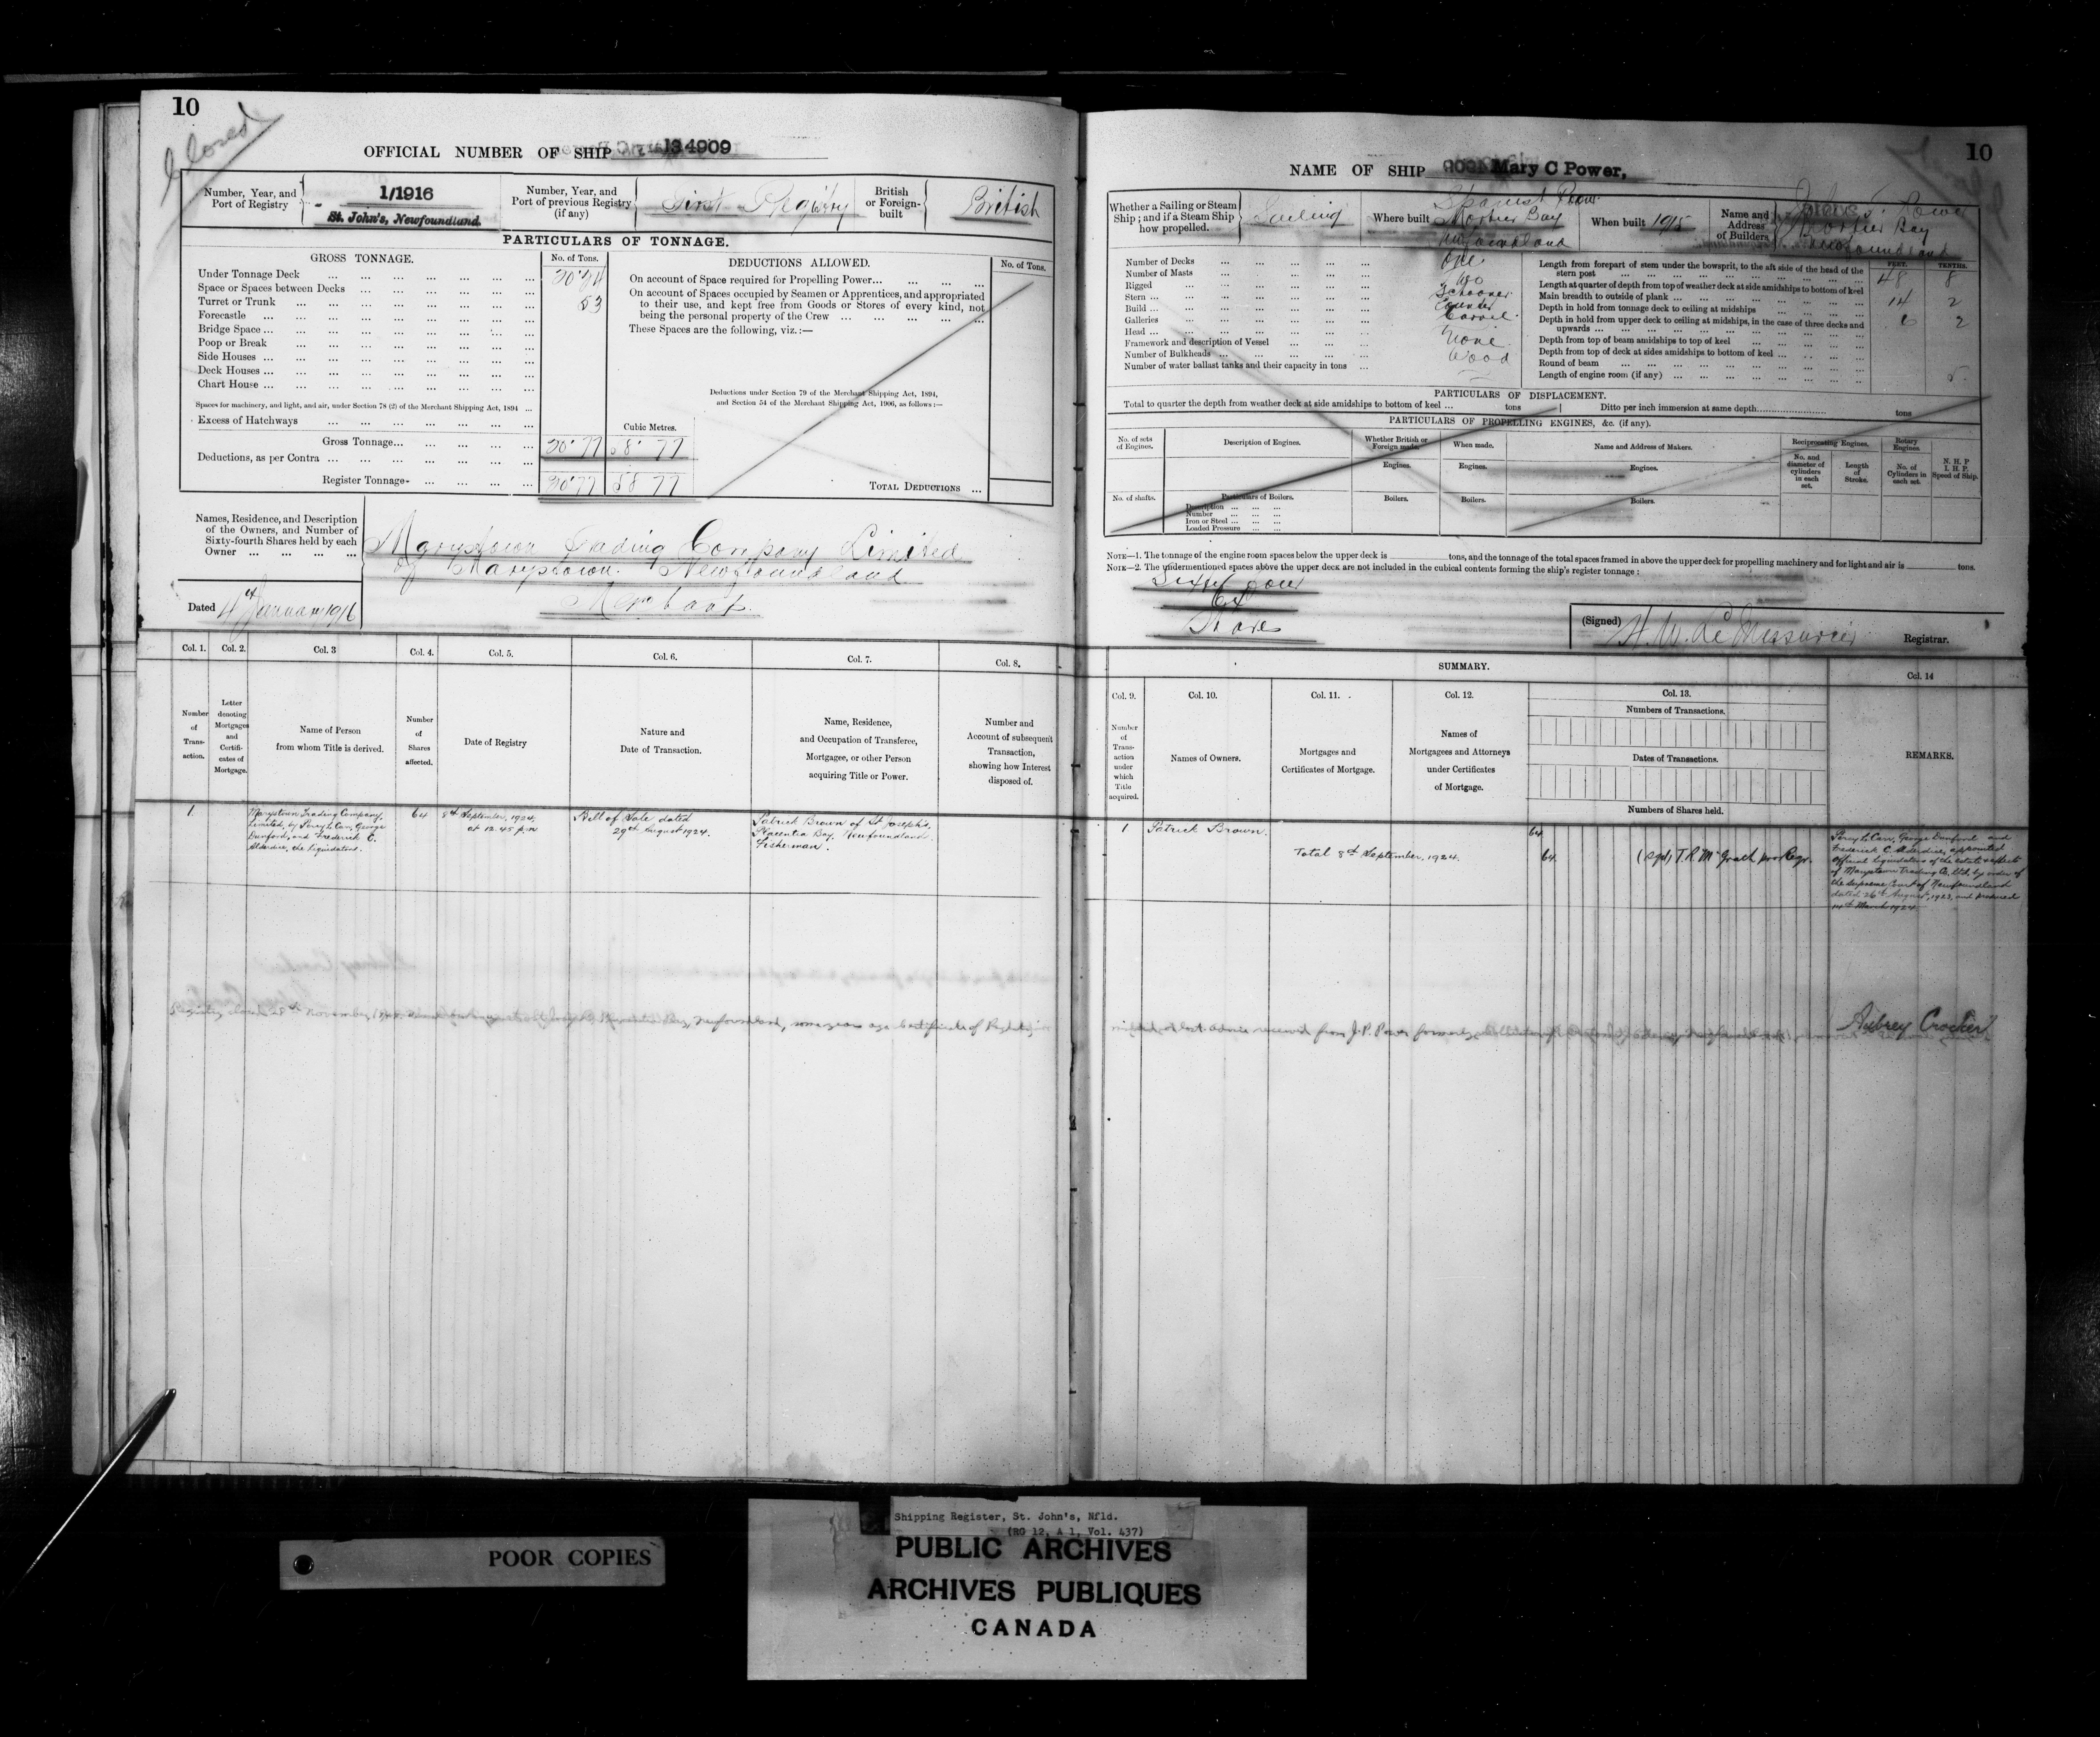 10
Closed
OFFICIAL NUMBER OF SHIP 134909
Number, Year, and Port of Registry
1/1916
St. John's, Newfoundland.
Number, Year, and Port of previous Registry (if any)
First Registry
British or Foreign-built
British
PARTICULARS OF TONNAGE.
GROSS TONNAGE.
No. of Tons.
Under Tonnage Deck
Space or Spaces between Decks
Turret or Trunk
53
Forecastle
Bridge Space
Poop or Break
Side Houses
Deck Houses
Chart House
Spaces for machinery, and light, and air, under Section 78 (2) of the Merchant Shipping Act, 1894
Excess of Hatchways
Cubic Metres.
Gross Tonnage 77 58·77
Deductions, as per Contra
Register Tonnage 77 58 77
DEDUCTIONS ALLOWED.
No. of Tons.
On account of Space required for Propelling Power
On account of Spaces occupied by Seamen or Apprentices, and appropriated
to their use, and kept free from Goods or Stores of every kind, not
being the personal property of the Crew
These Spaces are the following, viz.:—
Deductions under Section 79 of the Merchant Shipping Act, 1894,
and Section 54 of the Merchant Shipping Act, 1906, as follows:—
TOTAL DEDUCTIONS
Names, Residence, and Description
of the Owners, and Number of
Sixty-fourth Shares held by each
Owner
Marystown Trading Company Limited
of Marystown Newfoundland
Merchants
Dated 4th January 1916
Col. 1. Col. 2. Col. 3 Col. 4. Col. 5. Col. 6. Col. 7. Col. 8.
Number of Transaction.
Letter denoting Mortgages and Certificates of Mortgage.
Name of Person from whom Title is derived.
Number of Shares affected.
Date of Registry
Nature and Date of Transaction.
Name, Residence, and Occupation of Transferee, Mortgagee, or other Person acquiring Title or Power.
Number and Account of subsequent Transaction, showing how Interest disposed of.
1.
Marystown Trading Company,
Limited, by Percy L. Carr, George
Danford, and Frederick C.
Alderdice, the Liquidators.
64
8th September, 1924,
at 12.45 p.m
Bill of Sale dated
29th August 1924.
Patrick Brown of St Joseph's,
Placentia Bay, Newfoundland.
Fisherman.
Registry closed November Newfoundland, some years ago Certificate of Registry
10
NAME OF SHIP Mary C Power,
Whether a Sailing or Steam Ship; and if a Steam Ship how propelled.
Sailing
Where built
Spanish Room
Mortier Bay
Newfoundland
When built 1915
Name and Address of Builders
Power
Mortier Bay
Newfoundland
Number of Decks One
Number of Masts Two
Rigged Schooner
Stern Counter
Build Carvel
Galleries
Head None
Framework and description of Vessel Wood
Number of Bulkheads
Number of water ballast tanks and their capacity in tons
FEET. TENTHS.
Length from forepart of stem under the bowsprit, to the aft side of the head of the
stern post 48 8
Length at quarter of depth from top of weather deck at side amidships to bottom of keel
Main breadth to outside of plank 14 2
Depth in hold from tonnage deck to ceiling at midships 6 2
Depth in hold from upper deck to ceiling at midships, in the case of three decks and
upwards
Depth from top of beam amidships to top of keel
Depth from top of deck at sides amidships to bottom of keel
Round of beam
Length of engine room (if any)
PARTICULARS OF DISPLACEMENT.
Total to quarter the depth from weather deck at side amidships to bottom of keel tons
Ditto per inch immersion at same depth tons
PARTICULARS OF PROPELLING ENGINES, &c. (if any).
No. of sets of Engines.
Description of Engines.
Whether British or Foreign made.
When made.
Name and Address of Makers.
Reciprocating Engines.
Rotary Engines.
N. H. P
I. H. P.
Speed of Ship.
Engines. Engines. Engines.
No. and diameter of cylinders in each set.
Length of Stroke.
No. of Cylinders in each set.
No. of shafts.
Particulars of Boilers.
Description
Number
Iron or Steel
Loaded Pressure
Boilers. Boilers. Boilers.
NOTE—1. The tonnage of the engine room spaces below the upper deck is tons, and the tonnage of the total spaces framed in above the upper deck for propelling machinery and for light and air is tons.
NOTE—2. The undermentioned spaces above the upper deck are not included in the cubical contents forming the ship's register tonnage:
Sixty four
64
Shares
(Signed) H. W. LeMessurier Registrar.
SUMMARY.
Col. 9. Col. 10. Col. 11. Col. 12. Col. 13. Col. 14
Number of Transaction under which Title acquired.
Names of Owners.
Mortgages and Certificates of Mortgage.
Names of Mortgagees and Attorneys under Certificates of Mortgage.
Numbers of Transactions.
Dates of Transactions.
Numbers of Shares held.
REMARKS.
1 Patrick Brown. 64
Total 8th September, 1924. 64. (sgd) T. R. McGrath pro Regr.
Percy L. Carr, George Danford and
Frederick C. Alderdice, appointed
Official Liquidators of the estate & effects
of Marystown Trading Co. Ltd. by order of
the Supreme Court of Newfoundland
dated 26th August, 1923, and produced
14th March 1924.
lost advice received from J. P. Power formerly
Aubrey Crocker
POOR COPIES
Shipping Register, St. John's, Nfld.
(RG 12, A 1, Vol. 437)
PUBLIC ARCHIVES
ARCHIVES PUBLIQUES
CANADA